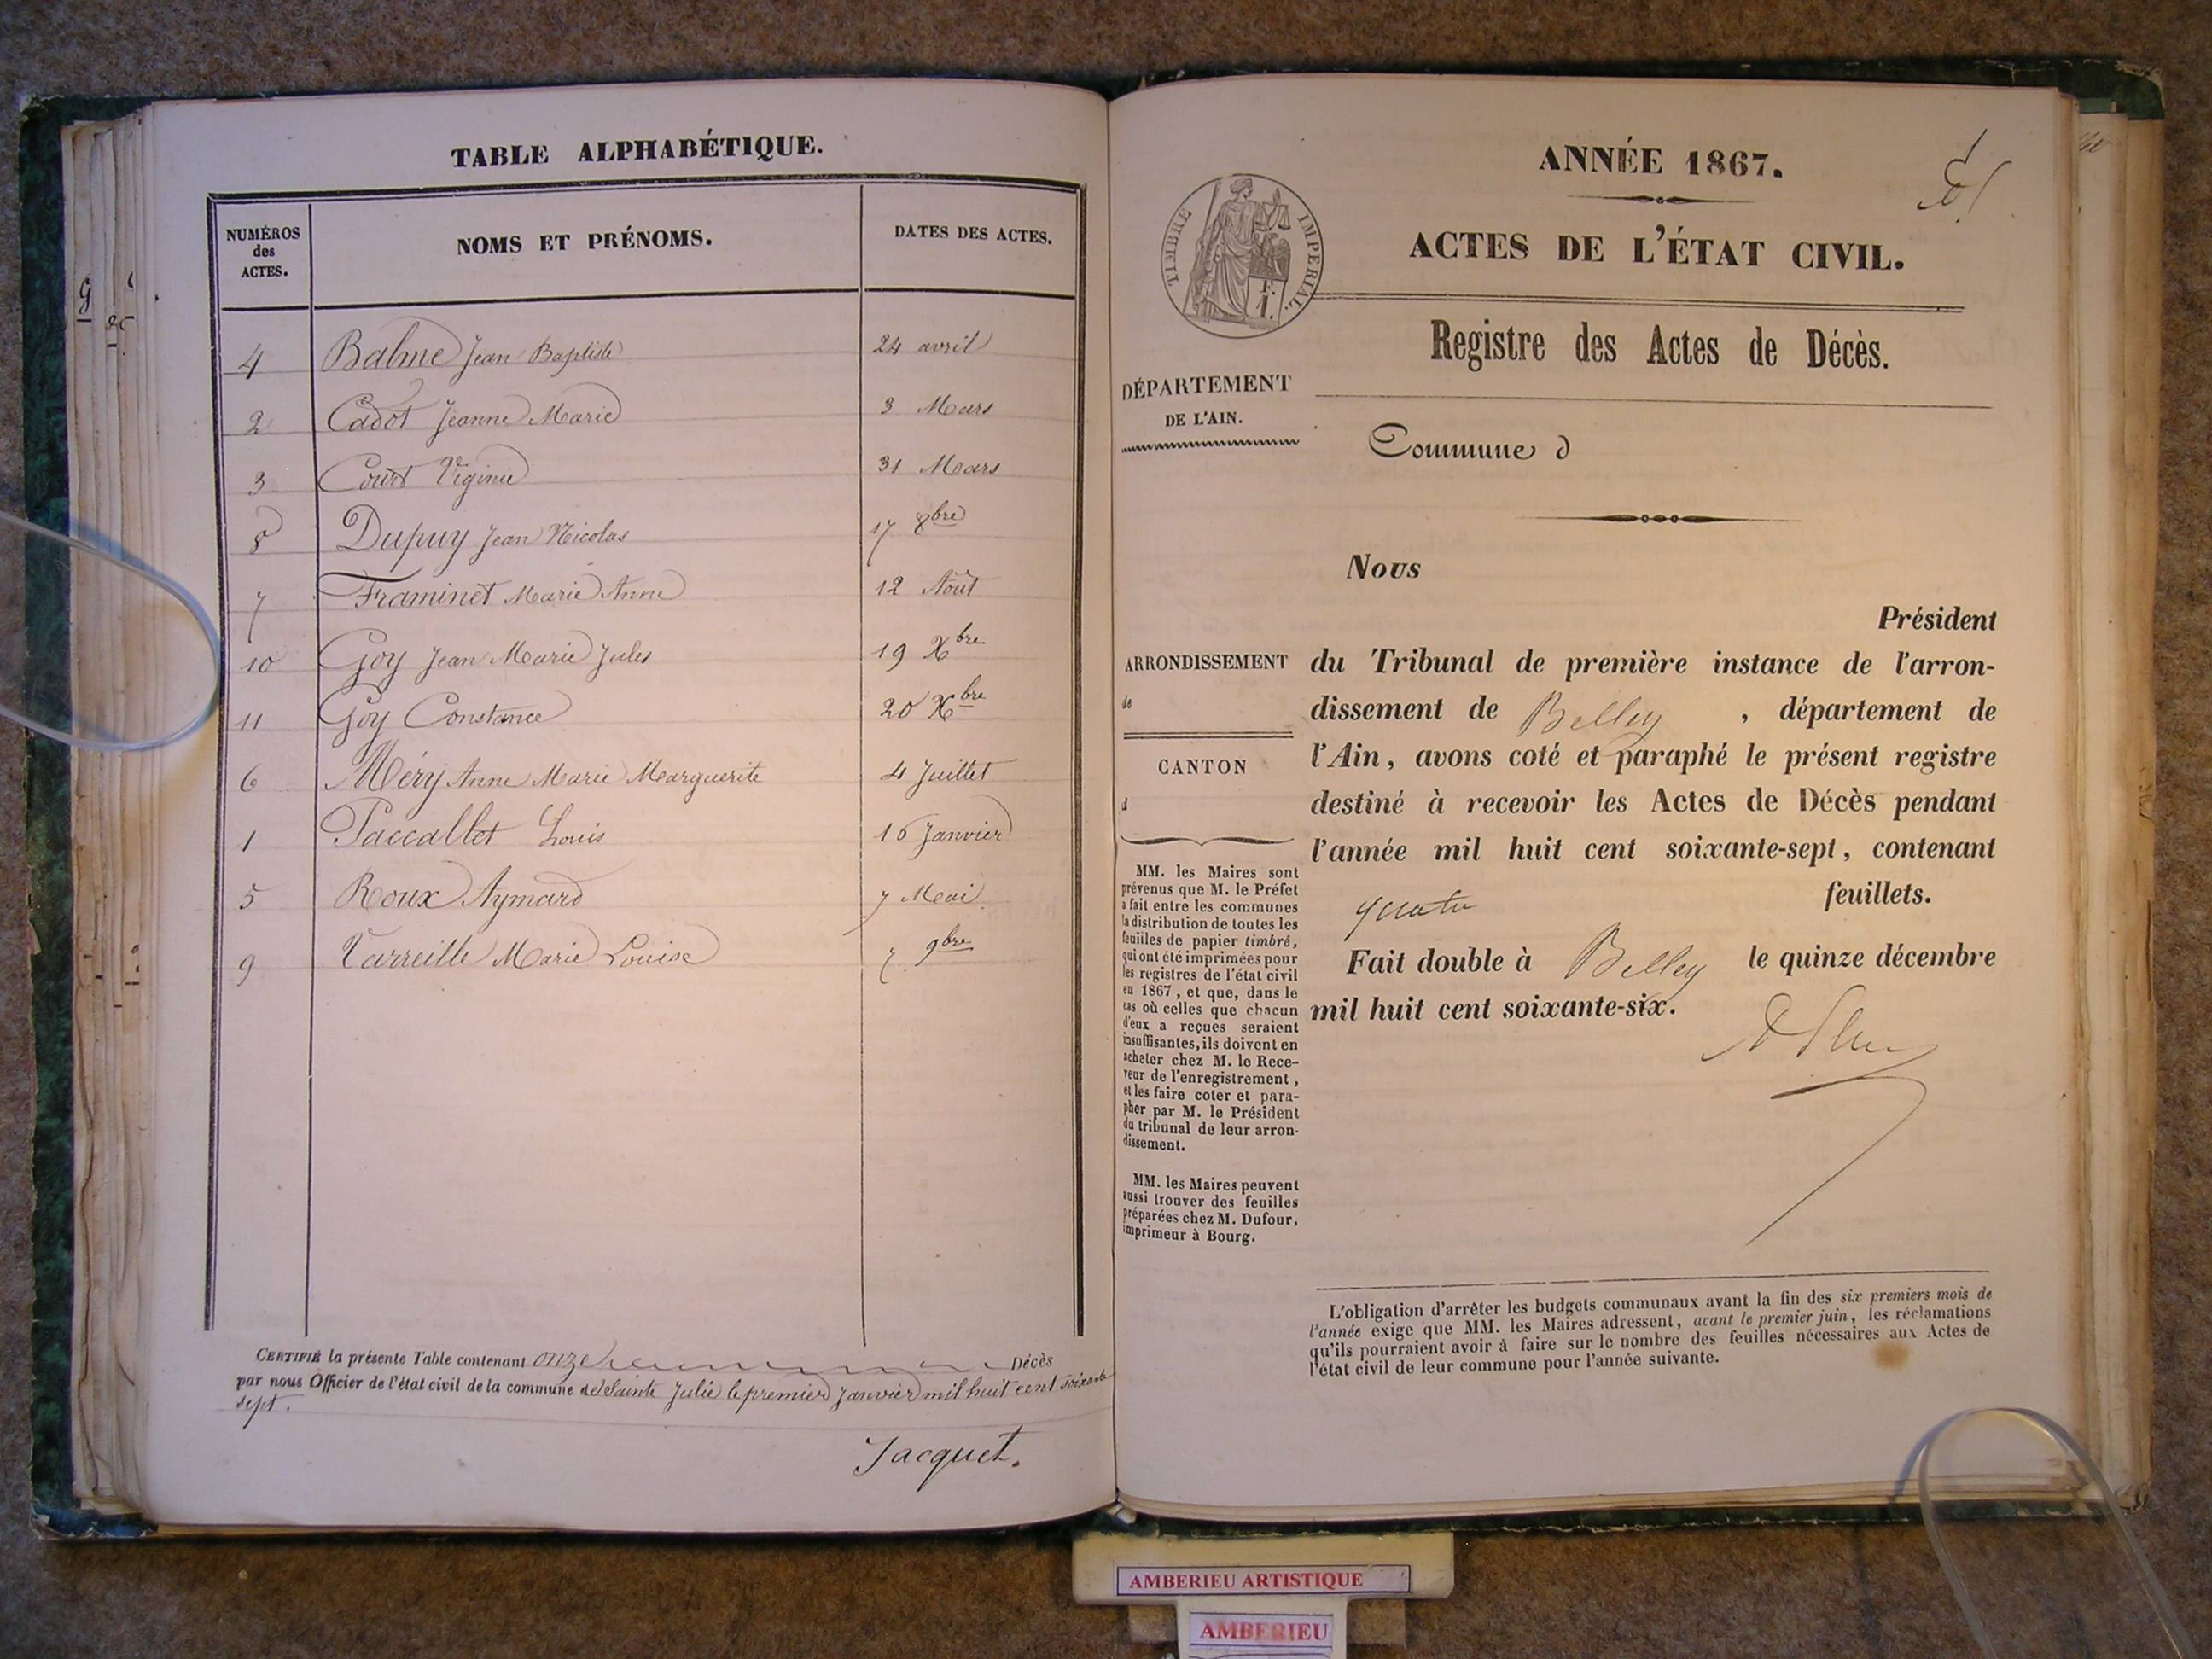 TABLE ALPHABÉTIQUE.
NUMÉROS des ACTES. NOMS ET PRÉNOMS. DATES DES ACTES.
4 Balme Jean Baptiste 24 avril
2 Cadot Jeanne Marie 3 Mars
3 Court Virginie 31 Mars
8 Dupuy Jean Nicolas 17 8bre
7 Framinet Marie Anne 12 Août
10 Goy Jean Marie Jules 19 Xbre
11 Goy Constance 20 Xbre
6 Méry Anne Marie Marguerite 4 Juillet
1 Paccallet Louis 16 Janvier
5 Roux Aymard 7 Mai
9 Varreille Marie Louise 7 9bre
CERTIFIÉ la présente Table contenant onze Décès
par nous Officier de l'état civil de la commune de Sainte Julie le premier Janvier mil huit cent soixante
sept.
Jacquet.
ANNÉE 1867.
ACTES DE L'ÉTAT CIVIL.
TIMBRE IMPERIAL.
1 F.
Registre des Actes de Décès.
DÉPARTEMENT
DE L'AIN.
Commune d
Nous
Président
ARRONDISSEMENT
de
CANTON
d
du Tribunal de première instance de l'arron-
dissement de Belley , département de
l'Ain, avons coté et paraphé le présent registre
destiné à recevoir les Actes de Décès pendant
l'année mil huit cent soixante-sept, contenant
quatre feuillets.
Fait double à Belley le quinze décembre
mil huit cent soixante-six.
MM. les Maires sont
prévenus que M. le Préfet
a fait entre les communes
la distribution de toutes les
feuilles de papier timbré,
qui ont été imprimées pour
les registres de l'état civil
en 1867, et que, dans le
cas où celles que chacun
d'eux a reçues seraient
insuffisantes, ils doivent en
acheter chez M. le Rece-
veur de l'enregistrement,
et les faire coter et para-
pher par M. le Président
du tribunal de leur arron-
dissement.
MM. les Maires peuvent
aussi trouver des feuilles
préparées chez M. Dufour,
imprimeur à Bourg.
L'obligation d'arrêter les budgets communaux avant la fin des six premiers mois de
l'année exige que MM. les Maires adressent, avant le premier juin, les réclamations
qu'ils pourraient avoir à faire sur le nombre des feuilles nécessaires aux Actes de
l'état civil de leur commune pour l'année suivante.
AMBERIEU ARTISTIQUE
AMBERIEU